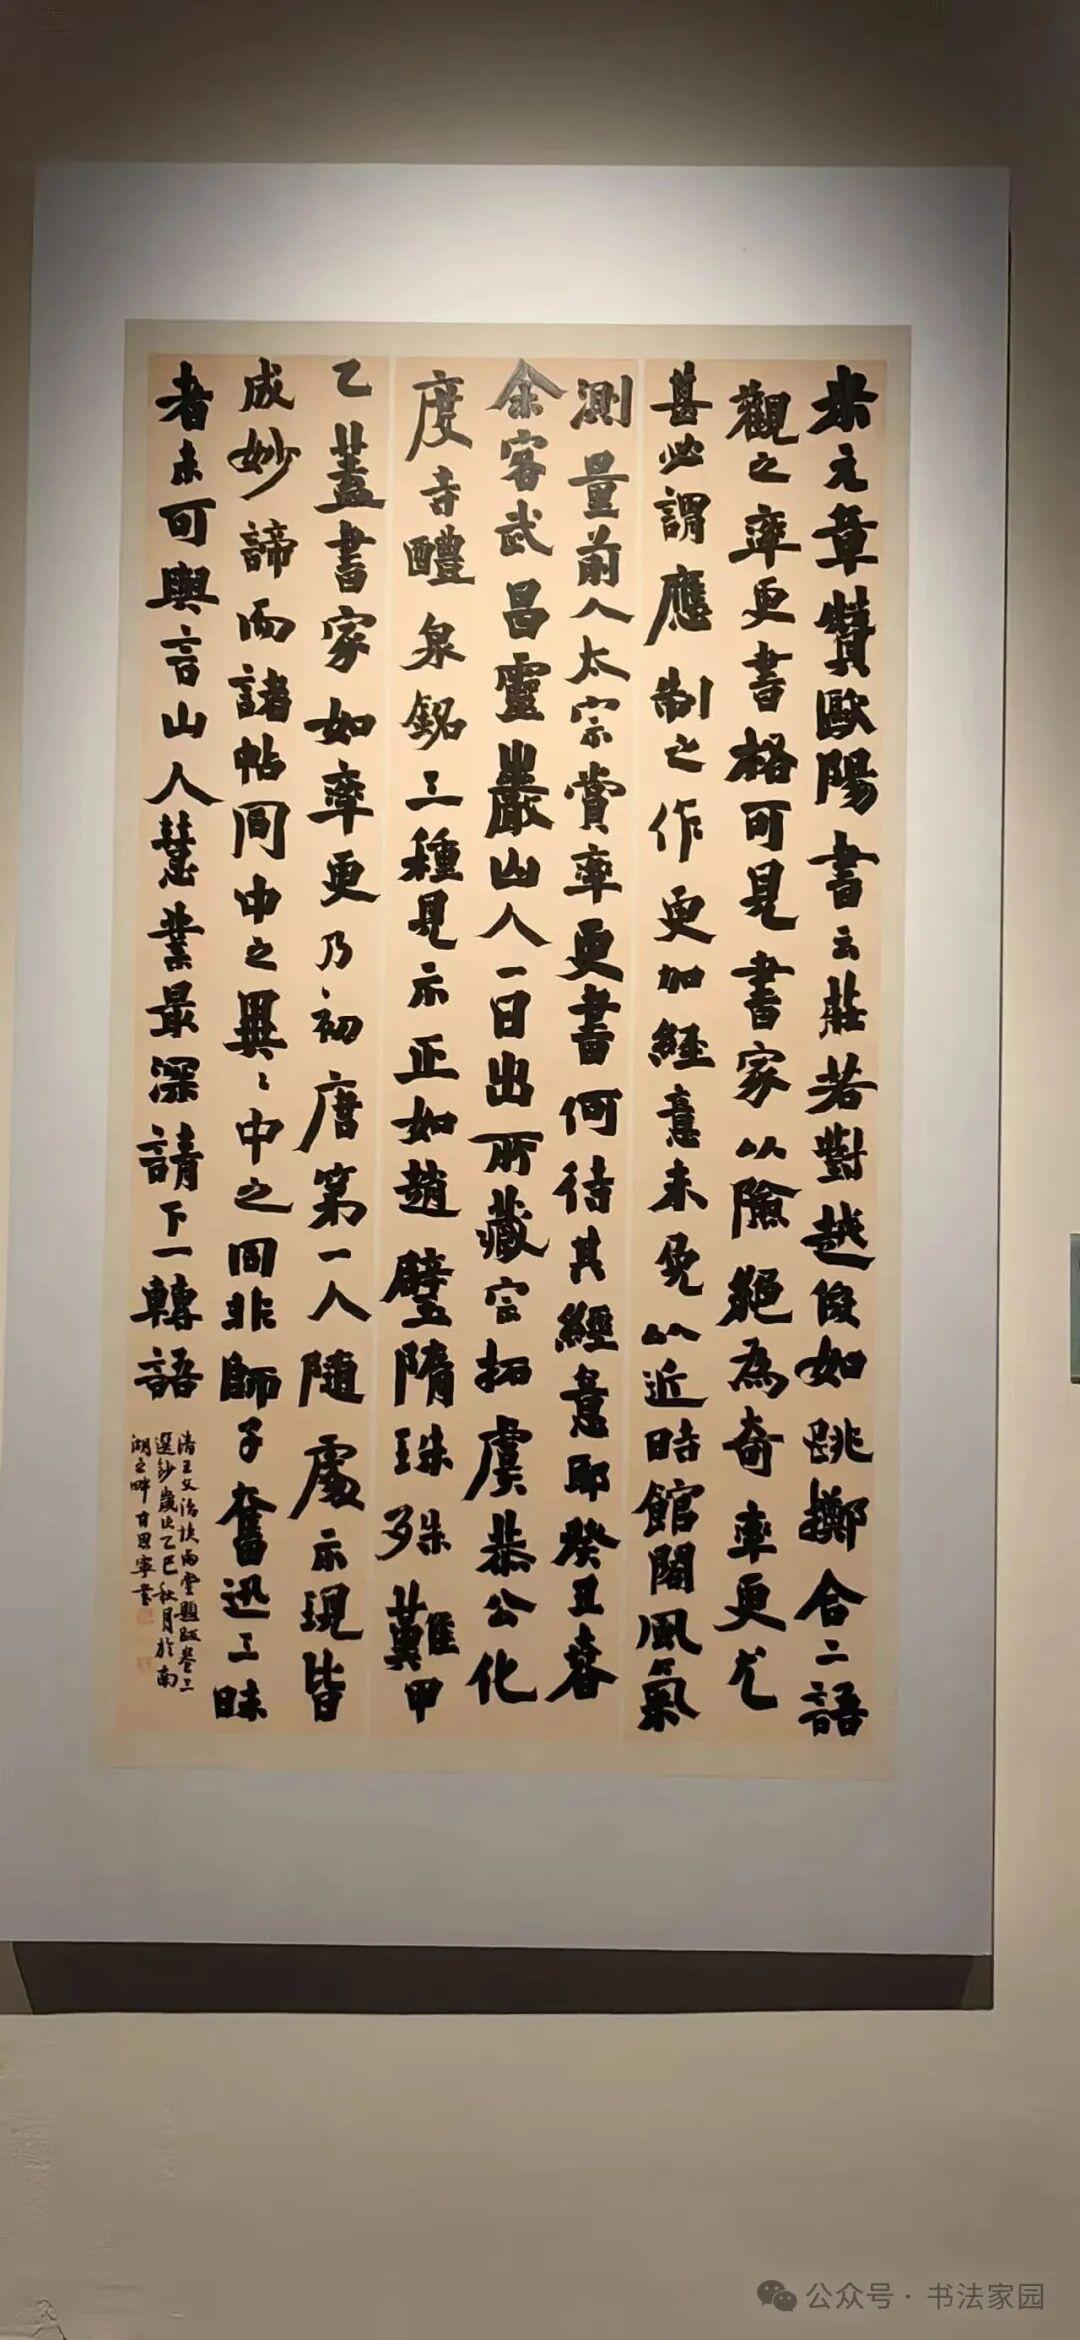 米元章贊歐陽書云莊若對越俊如跳擲合二語
觀之率更書格可見書家以險絕為奇率更尤
甚必謂應制之作更加經意未免以近時館閣風氣
測量前人太宗賞率更書何待其經意耶癸丑春
余客武昌靈巖山人一日出所藏宗拓虞恭公化
度寺醴泉銘三種見示正如趙璧隋珠殊難甲
乙蓋書家如率更乃初唐第一人隨處示現皆
成妙諦而諸帖同中之異〻中之同非師子奮迅三昧
者未可與言山人慧業最深請下一轉語
清王文治快雨堂題跋卷三
選鈔歲次乙巳秋月於南
湖之畔甘思寧書
公众号·书法家园